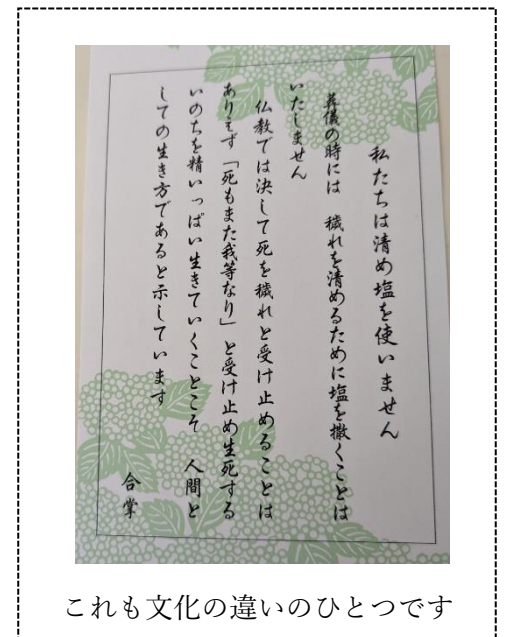 私たちは清め塩を使いません
葬儀の時には　穢れを清めるために塩を撒くことは
いたしません
仏教では決して死を穢れと受け止めることは
ありえず「死もまた我等なり」と受け止め生死する
いのちを精いっぱい生きていくことこそ　人間と
しての生き方であると示しています
合掌
これも文化の違いのひとつです